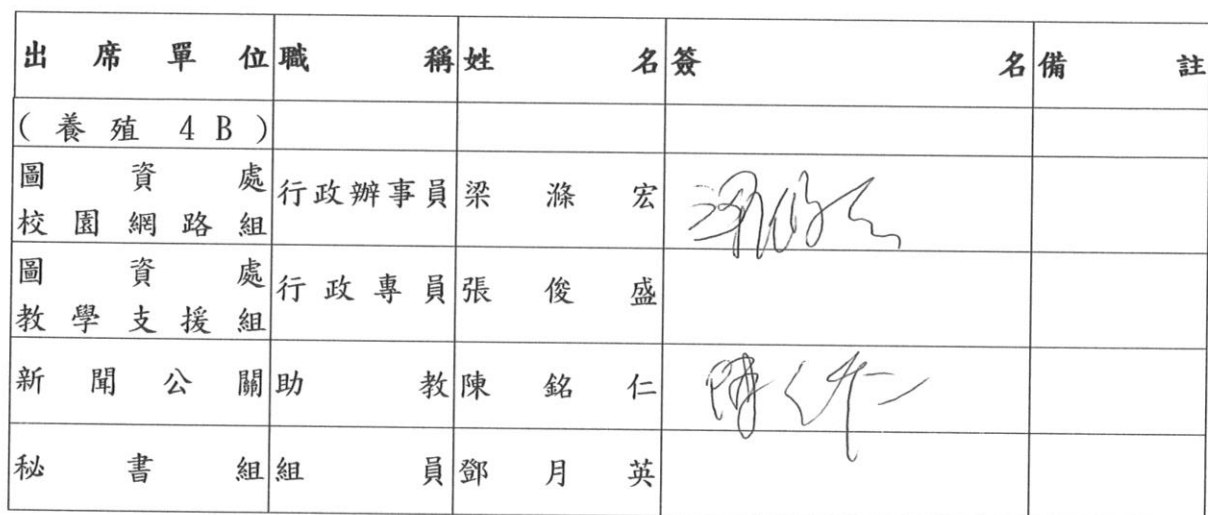 出席單位 職稱 姓名 簽名 備註
(養殖4B)
圖資處
校園網路組 行政辦事員 梁滌宏
圖資處
教學支援組 行政專員 張俊盛
新聞公關 助教 陳銘仁
秘書組 組員 鄧月英